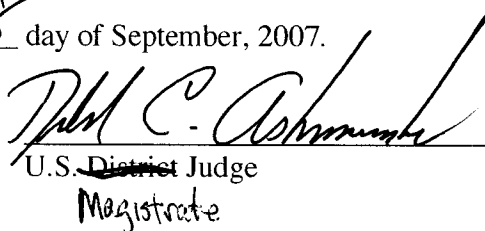 day of September, 2007.
C.
U.S. District Judge
Magistrate